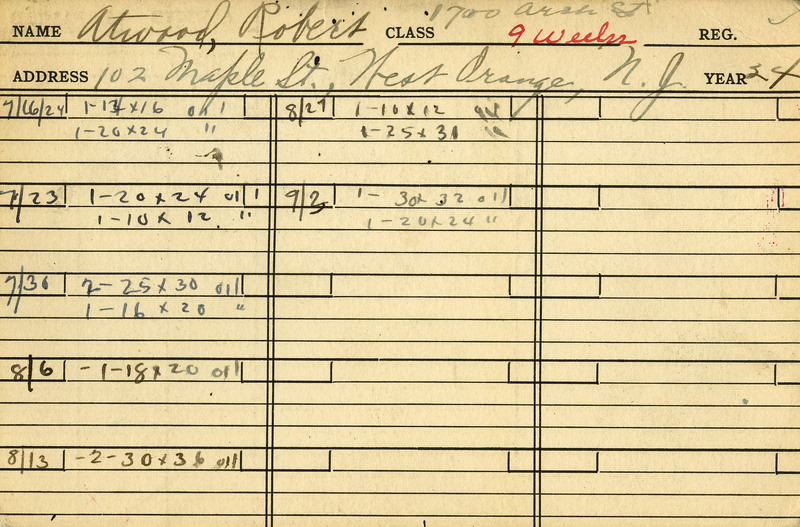 1700 Arch St
NAME Atwood, Robert CLASS 9 Weeks REG.
ADDRESS 102 Maple St., West Orange, N. J. YEAR 24
7/16/24 1-14x16 oil
1-20x24 "
7/23 1-20x24 oil
1-10x12 "
7/30 2-25x30 oil
1-16x20 "
8/6 -1-18x20 oil
8/13 -2-30x36 oil
8/27 1-10x12
1-25x31
9/2 1- 30x32 oil
1-20x24 "